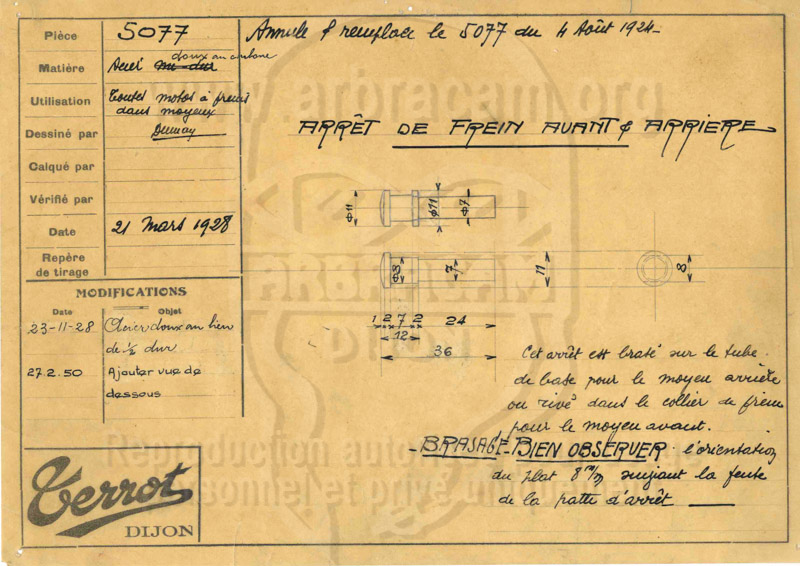 Pièce 5077
Annule & remplace le 5077 du 4 Août 1924
doux au carbone
Matière Acier mi-dur
Utilisation Toutes motos à freins
dans moyeux
Dessiné par
Calqué par
Vérifié par
Date 21 Mars 1928
Repère
de tirage
ARRÊT DE FREIN AVANT & ARRIERE
φ11 φ11 φ7
φ8 7 11 8
1 2 7 2 24
12
36
MODIFICATIONS
Date Objet
23-11-28 Acier doux au lieu
de ½ dur
27.2.50 Ajouter vue de
dessous
Cet arrêt est brasé sur le tube
de base pour le moyeu arrière
ou rivé dans le collier de frein
pour le moyeu avant.
- BRASAGE - BIEN OBSERVER l'orientation
du plat 8 m/m suivant la fente
de la patte d'arrêt
Terrot
DIJON
www.arbracam.org
ARBRACAM
DIJON
Reproduction
personnel et privé